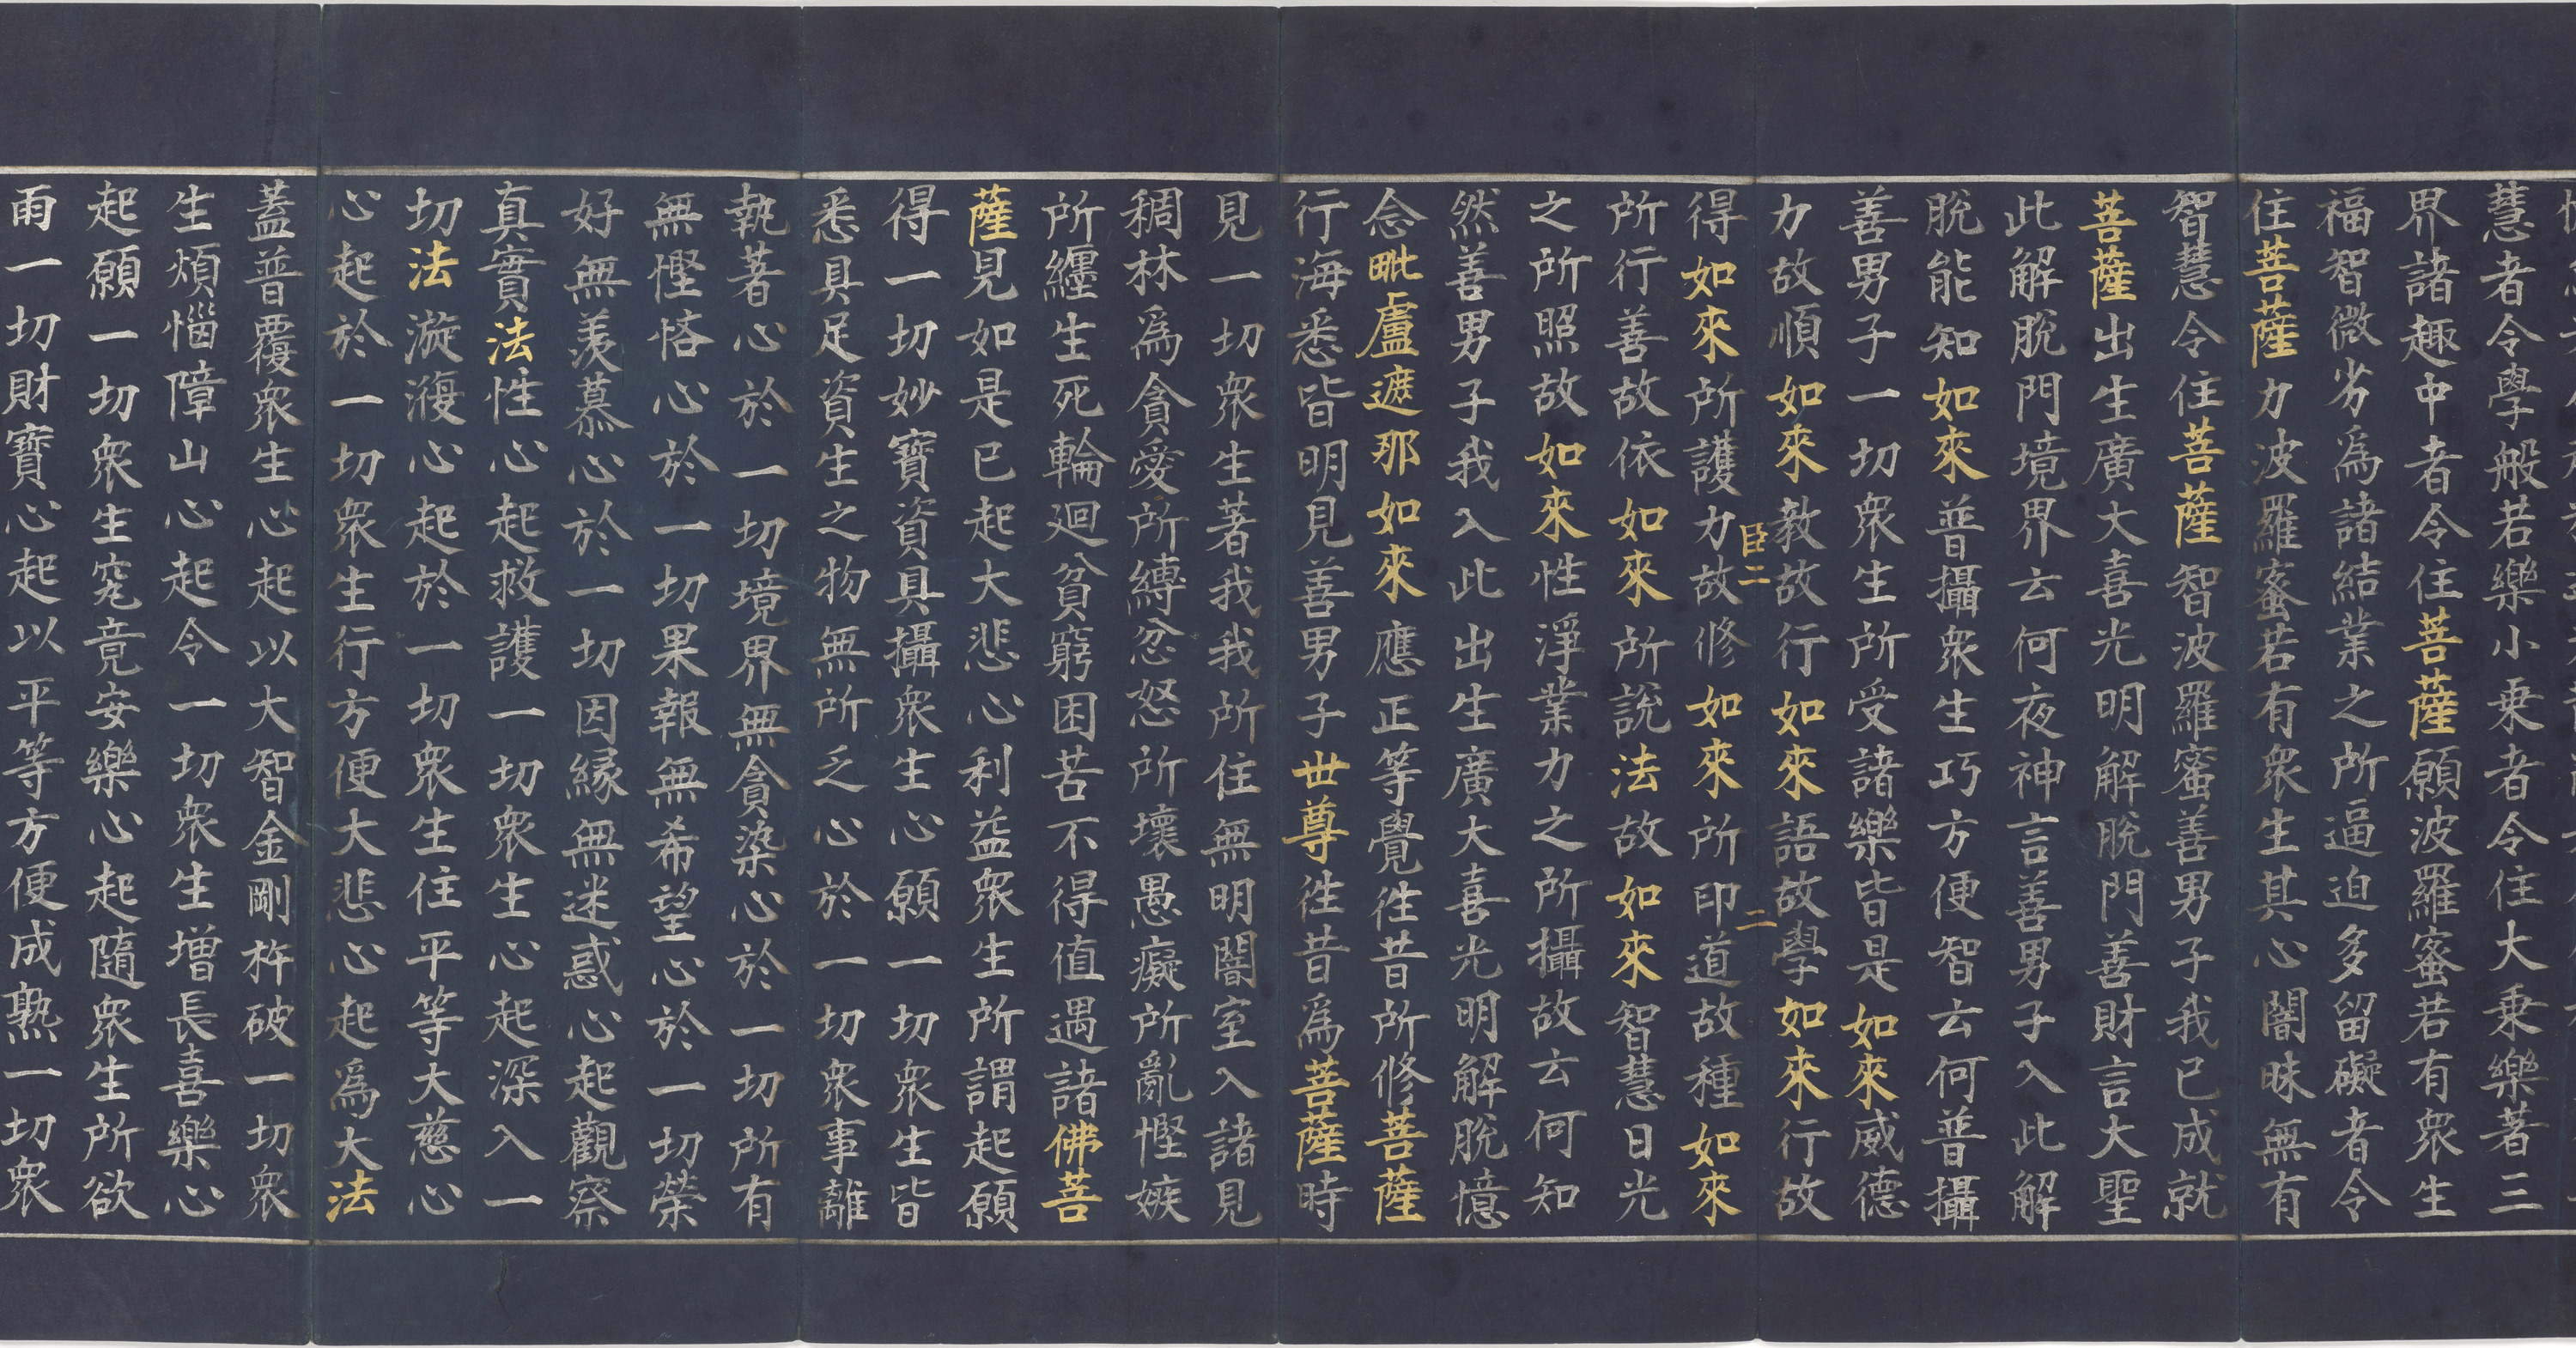 慧者令學般若樂小乗者令住大乗樂著三
界諸趣中者令住菩薩願波羅蜜若有衆生
福智微劣爲諸結業之所逼迫多留礙者令
住菩薩力波羅蜜若有衆生其心闇昧無有
智慧令住菩薩智波羅蜜善男子我已成就
菩薩出生廣大喜光明解脫門善財言大聖
此解脫門境界云何夜神言善男子入此解
脫能知如來普攝衆生巧方便智云何普攝
善男子一切衆生所受諸樂皆是如來威德
力故順如來教故行如來語故學如來行故
臣二 二
得如來所護力故修如來所印道故種如來
所行善故依如來所說法故如來智慧日光
之所照故如來性淨業力之所攝故云何知
然善男子我入此出生廣大喜光明解脫憶
念毗盧遮那如來應正等覺徃昔所修菩薩
行海悉皆明見善男子世尊徃昔爲菩薩時
見一切衆生著我我所住無明闇室入諸見
稠林爲貪愛所縛忿怒所壞愚癡所亂慳嫉
所纏生死輪迴貧窮困苦不得值遇諸佛菩
薩見如是已起大悲心利益衆生所謂起願
得一切妙寶資具攝衆生心願一切衆生皆
悉具足資生之物無所乏心於一切衆事離
執著心於一切境界無貪染心於一切所有
無慳悋心於一切果報無希望心於一切榮
好無羨慕心於一切因緣無迷惑心起觀察
真實法性心起救護一切衆生心起深入一
切法漩澓心起於一切衆生住平等大慈心
心起於一切衆生行方便大悲心起爲大法
蓋普覆衆生心起以大智金剛杵破一切衆
生煩惱障山心起令一切衆生增長喜樂心
起願一切衆生究竟安樂心起隨衆生所欲
雨一切財寶心起以平等方便成熟一切衆